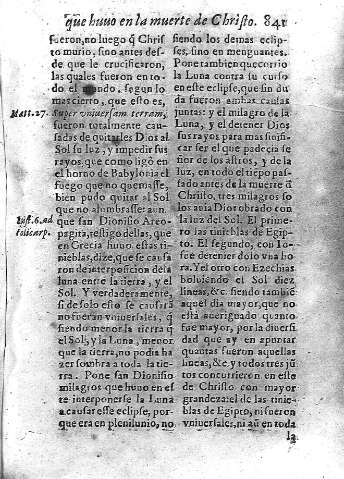 que huuo en la muerte de Christo. 841
fueron, no luego q̃ Chris
to murio, sino antes des-
de que le crucificaron,
las quales fueron en to-
do el mundo, segun lo
mas cierto, que esto es,
Matt. 27.
Super vniuersam terram,
fueron totalmente cau-
sadas de quitarles Dios al
Sol su luz, y impedir sus
rayos, que como ligò en
el horno de Babylonia el
fuego que no quemasse,
bien pudo quitar al Sol
que no alumbrasse: aun
Epist. 6. ad
Policarp.
que san Dionisio Areo-
pagita, testigo dellas, que
en Grecia huuo estas ti-
nieblas, dize, que se causa
ron de interposicion de la
luna entre la tierra, y el
Sol. Y verdaderamente,
si de solo esto se causarã
no fueran vniuersales, q̃
siendo menor la tierra q̃
el Sol, y la Luna, menor
que la tierra, no podia ha
zer sombra a toda la tie-
rra. Pone san Dionisio
milagros que huuo en el
te interponerse la Luna
a causar esse eclipse, por-
que era en plenilunio, no
siendo los demas eclip-
ses, sino en menguantes.
Pone tambien que corrio
la Luna contra su curso
en este eclipse, que sin du
da fueron ambas causas
juntas: y el milagro de la
Luna, y el detener Dios
sus rayos para mas sinifi-
car ser el que padecia se
ñor de los astros, y de la
luz, en todo el tiẽpo pas-
sado antes de la muerte d̃
Christo, tres milagros so
los auia Dios obrado con
la luz del Sol. El prime-
ro las tinieblas de Egip-
to. El segundo, con Io-
sue detener dolo vna ho
ra. Y el otro con Ezechias
boluiendo el Sol diez
lineas, &c. siendo tambiẽ
aquel dia mayor, que no
està aueriguado quanto
fue mayor, por la diuersi
dad que ay en apuntar
quantas fueron aquellas
lineas, &c. y todos tres jũ
tos concurrieron en este
de Christo con mayor
grandeza: el de las tinie-
blas de Egipto, ni fueron
vniuersales, ni aũ en toda
la